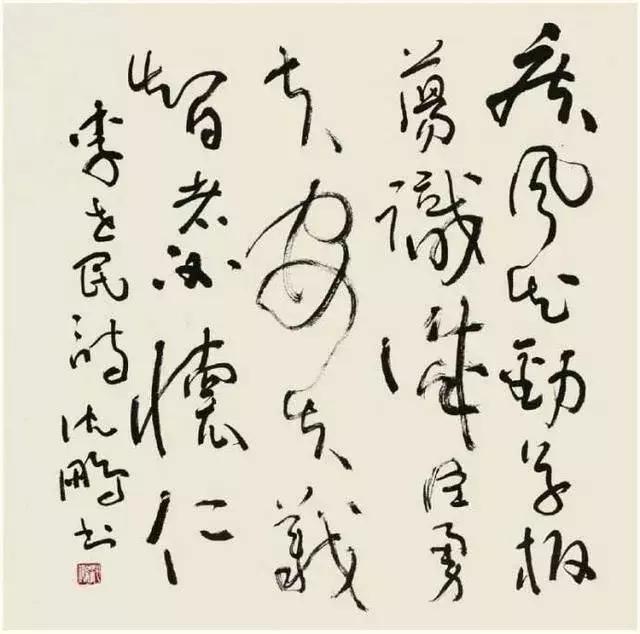 疾風知勁草板
蕩識誠臣勇
夫安知義
智者必懷仁
李世民詩 沈鵬书